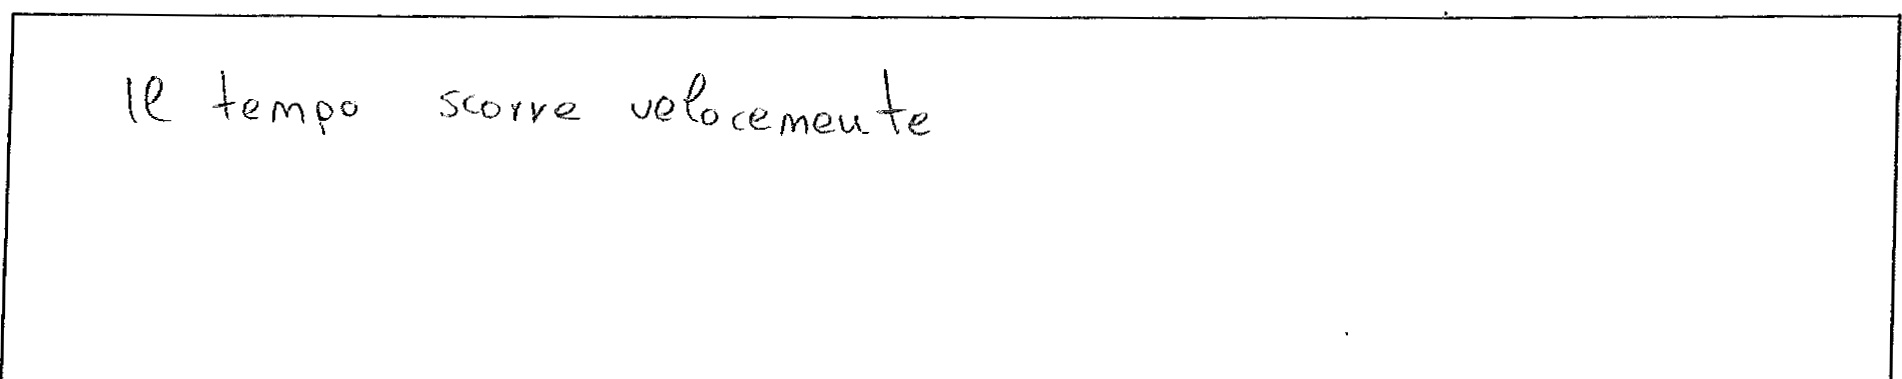 Il tempo scorre velocemente